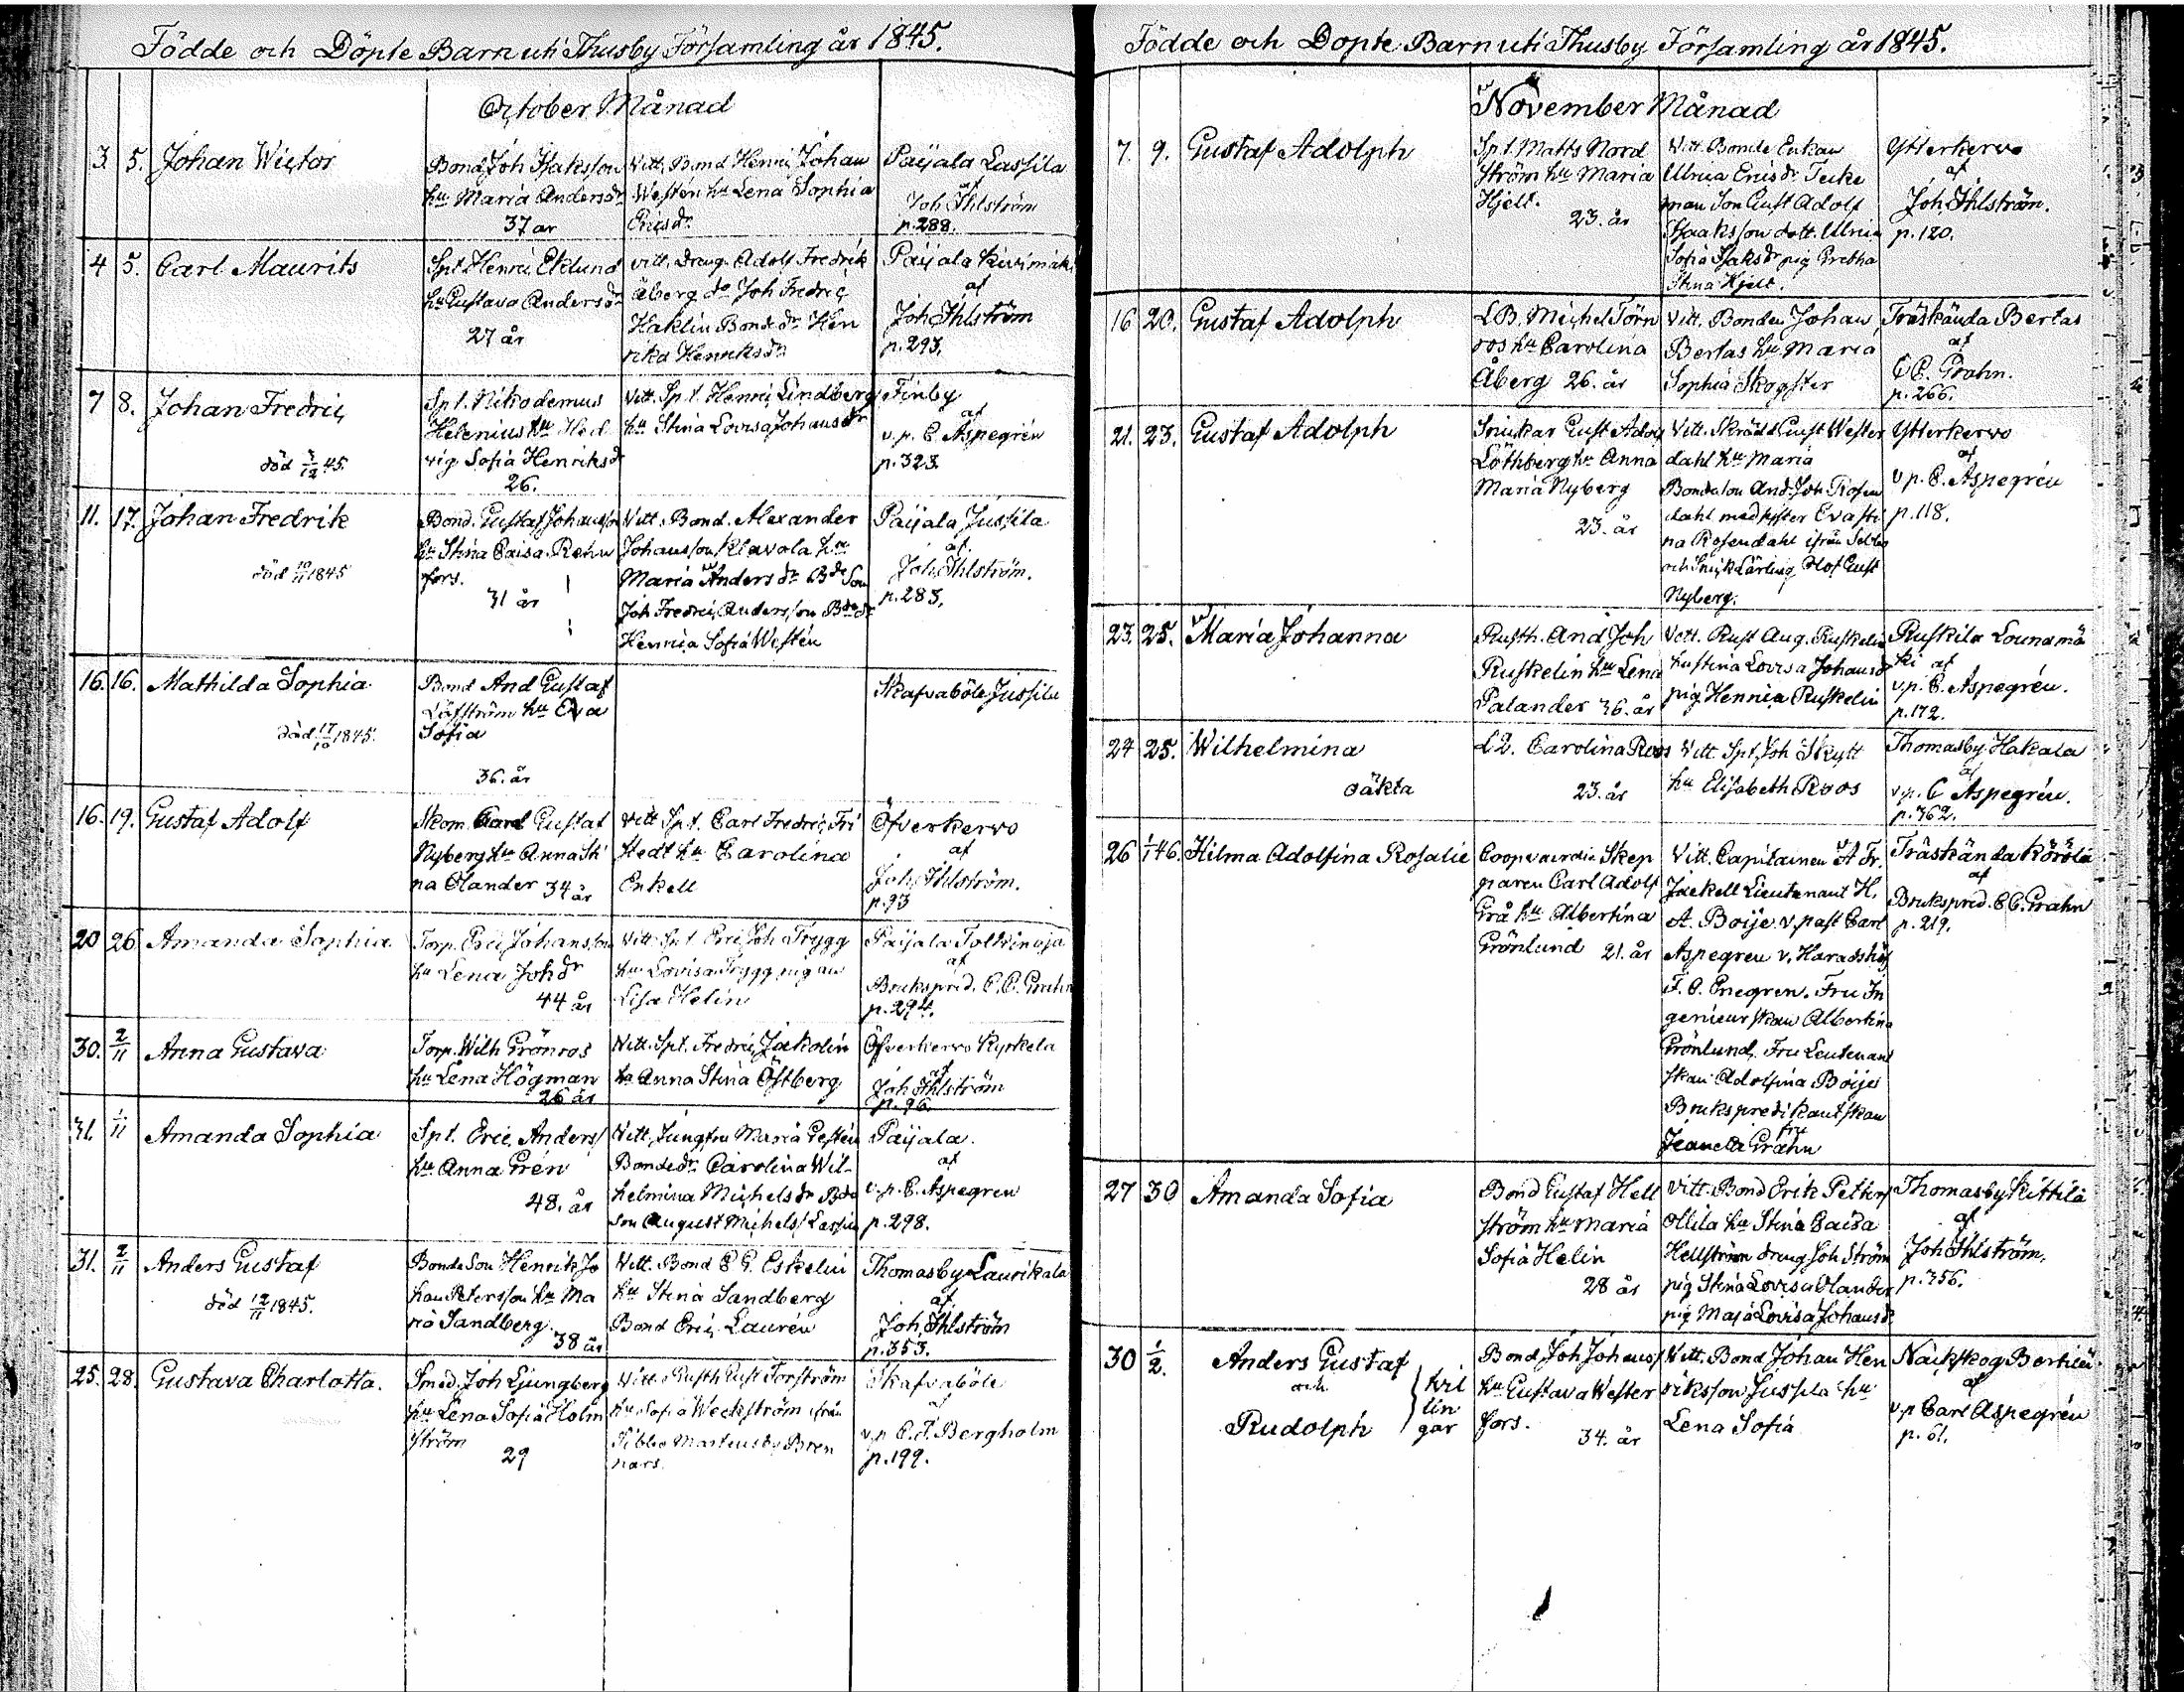 Födde och Döpte Barn uti Thusby Församling år 1845.
October Månad
3. 5. Johan Wictor
Bond Joh Isaksson
hu Maria Andersdr
37 år
Vitt. Bond Henric Johan
Westén hu Lena Sophia
Ericsdr
Paijala Lassila
af
Joh. Ihlström
p. 288.
4 5. Carl Maurits
Spt. Henric Eklund
hu Gustava Andersdr
27 år
vitt. Dräng Adolf Fredrik
Åberg do Joh Fredric
Haklin Bond dr Hen
rika Henriksdr
Paijala Kivimäki
af
Joh. Ihlström
p. 293.
7 8. Johan Fredric
död 3/12 45.
Spt. Nikodemus
Helenius hu Hed
vig Sofia Henriksdr
26.
Vitt. Spt. Henric Lindberg
hu Stina Lovisa Johansdr
Finby
af
v. p. C. Aspegrén
p. 323.
11. 17. Johan Fredrik
död 10/11 1845
Bond. Gustaf Johansson
hu Stina Caisa Rehn
fors.
31 år
Vitt. Bond. Alexander
Johansson Klavola hu
Maria Andersdr Bde Son
Joh Fredric Andersson Bde dr
Henrica Sofia Westén
Paijala Jussila
af
Joh. Ihlström.
p. 283.
16. 16. Mathilda Sophia
död 17/10 1845.
Bond And Gustaf
Löfström hu Eva
Sofia
36. år
Skafvaböle Jussila
16. 19. Gustaf Adolf
Skom. Carl Gustaf
Nyberg hu Anna Sti
na Olander 34 år
Vitt Spt. Carl Fredric Fri
stedt hu Carolina
Enkell
Öfverkervo
af
Joh. Ihlström.
p. 93
20 26 Amanda Sophia
Torp. Eric Johansson
hu Lena Johdr
44 år
Vitt. Spt. Eric Joh Trygg
hu Lovisa Trygg pigan
Lisa Helin
Paijala Tolkinoja
af
Brukspred. C. C. Grahn
p. 294.
30. 2/11 Anna Gustava
Torp. Wilh Grönros
hu Lena Högman
26 år
Vitt. Spt. Fredric Jakolin
hu Anna Stina Östberg
Öfverkervo Kyrkela
af
Joh Ihlström
p. 96.
31. 1/11 Amanda Sophia
Spt. Eric Anders/
hu Anna Grén
48. år
Vitt. Jungfru Maria Gestén
Bondedr Carolina Wil-
helmina Michelsdr Bde
son August Michels/ Lassila
Paijala.
af
v. p. C. Aspegren
p. 298.
31. 2/11 Anders Gustaf
död 12/11 1845.
Bonde Son Henrik Jo
han Petersson hu Ma
ria Sandberg
38 år
Vitt. Bond E G. Eskelin
hu Stina Sandberg
Bond Eric Laurén
Thomasby Laurikala
af
Joh. Ihlström
p. 353.
25. 28. Gustava Charlotta.
Smed. Joh Ljungberg
hu Lena Sofia Holm
ström
29
Vitt. Rusth Gust Forström
hu Sofia Weckström ifrån
Sibbo Martensby Bren
nars.
Skafvaböle
af
v. p C. F. Bergholm
p. 199.
Födde och Döpte Barn uti Thusby Församling år 1845.
November Månad
7. 9. Gustaf Adolph
Spt. Matts Nord
ström hu Maria
Hjelt.
23. år
Vitt. Bonde Enkan
Ulrica Ericsdr Tecke
man Son Gust Adolf
Isaaksson dott. Ulrica
Sofia Isaksdr pig Gretha
Stina Hjelt.
Ytterkervo
af
Joh. Ihlström.
p. 120.
16 20. Gustaf Adolph
L B. Michel Törn
ros hu Carolina
Åberg 26. år
Vitt. Bonden Johan
Bertas hu Maria
Sophia Skogster
Träskända Bertas
af
C C. Grahn.
p. 266.
21. 23. Gustaf Adolph
Snickar Gust Adolf
Löthberg hu Anna
Maria Nyberg
23. år
Vitt. Skrädd Gust Wester
dahl hu Maria
Bondeson And Joh Rosen
dahl med syster Eva Sti
na Rosendahl ifrån Sibbo
och Snick Lärling Olof Gust
Nyberg.
Ytterkervo
af
v p. C. Aspegrén
p. 118.
23. 25. Maria Johanna
Rusth. And Joh
Ruskelin hu Lena
Palander 36. år
Vitt. Rust Aug. Ruskelin
hu Stina Lovisa Johansdr
pig Henrica Ruskelin
Ruskila Lounamä
ki af
v. p. C. Aspegrén.
p. 172.
24 25. Wilhelmina
oäkta
L Q. Carolina Roos
23. år
Vitt. Spt. Joh Skytt
hu Elisabeth Roos
Thomasby Hakala
af
v. p. C Aspegrén.
p. 362.
26 1/1 46. Hilma Adolfina Rosalie
Coopvaerdie Skep
paren Carl Adolf
Grå hu Albertina
Grönlund 21. år
Vitt. Capitainen A Fr.
Jäckell Lieutenant H.
A. Boije v. past Carl
Aspegren v. Häradshöf
F. C. Enegren. Fru In
genieurskan Albertina
Grönlund, Fru Leutenant
skan Adolfina Boije
Brukspredikantskan
fru
Jeanette Grahn
Träskända Körölä
af
Brukspred. C C. Grahn
p. 219.
27 30 Amanda Sofia
Bond Gustaf Hell
ström hu Maria
Sofia Helin
28 år
Vitt. Bond Erik Petters/
Ollila hu Stina Caisa
Hellström dräng Joh Ström
pig Stina Lovisa Olander
pig Maja Lovisa Johansdr
Thomasby Kittilä
af
Joh Ihlström.
p. 356.
30 1/2. Anders Gustaf
och
Rudolph
tvil
lin
gar
Bond, Joh Johans/
hu Gustava Wester
fors.
34. år
Vitt. Bond Johan Hen
riksson Jussila hu
Lena Sofia
Näckskog Bertila
af
v. p Carl Aspegrén
p. 61.